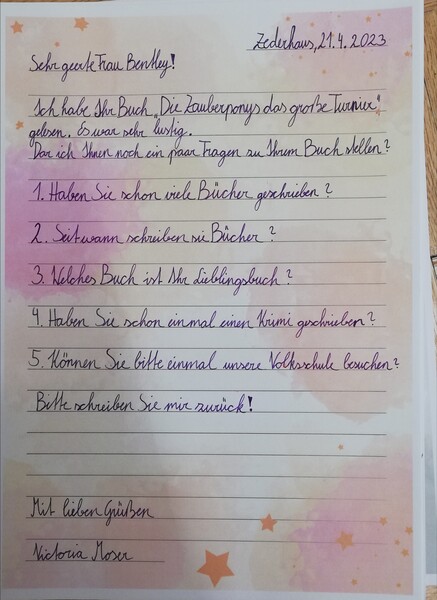 Zederhaus, 21.4.2023
Sehr geerte Frau Bentley!
Ich habe Ihr Buch „Die Zauberponys das große Turnier“
gelesen. Es war sehr lustig.
Dar ich Ihnen noch ein paar Fragen zu Ihrem Buch stellen?
1. Haben Sie schon viele Bücher geschrieben?
2. Seit wann schreiben sie Bücher?
3. Welches Buch ist Ihr Lieblingsbuch?
4. Haben Sie schon einmal einen Krimi geschrieben?
5. Können Sie bitte einmal unsere Volksschule besuchen?
Bitte schreiben Sie mir zurück!
Mit lieben Grüßen
Victoria Moser